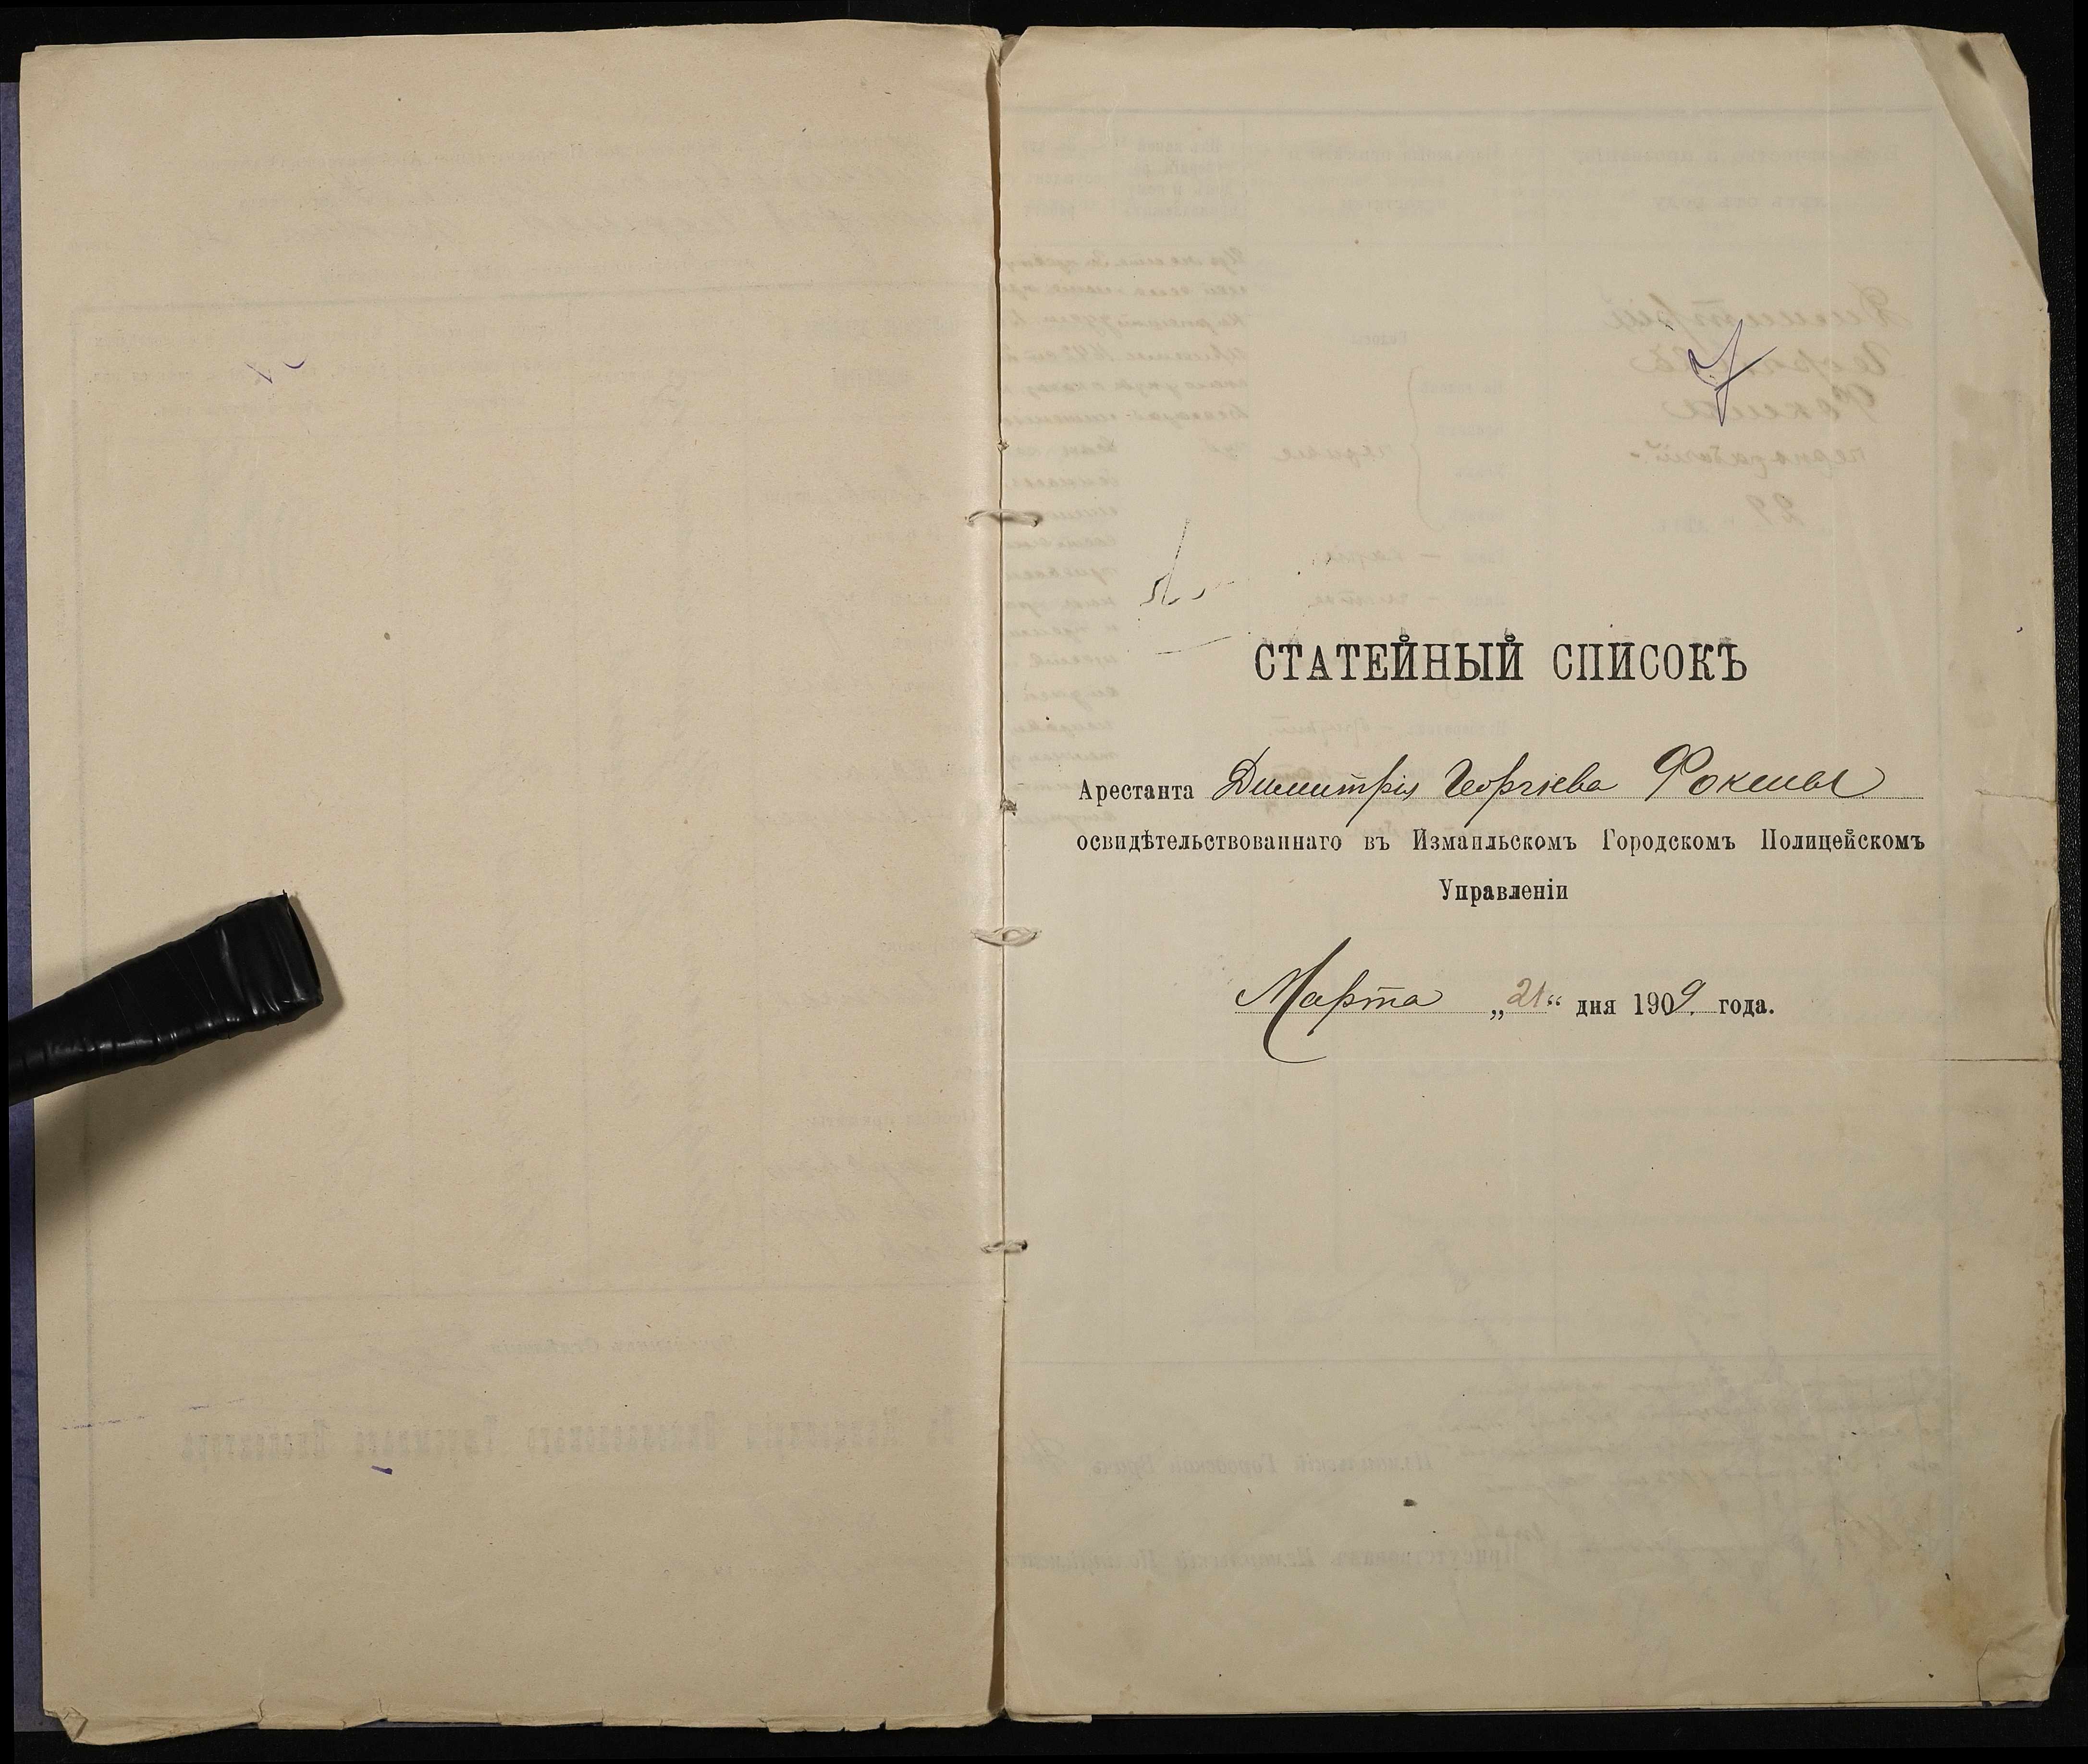 СТАТЕЙНЫЙ СПИСОКЪ
Арестанта Димитрія Георгіева Фокшы
освидѣтельствованнаго въ Измаильскомъ Городскомъ Полицейскомъ
Управленіи
Марта „21“ дня 1909 года.